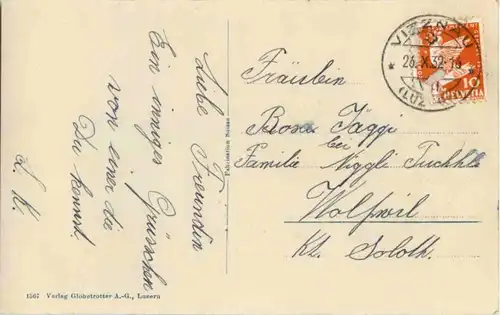 Liebe Freundin
Ein inniges Grüsschen
von einer die
Du kennst.
L. K.
Fabrication Suisse
VITZNAU
26.X.32-19
(LUZ
10
HELVETIA
Fräulein
Rosa Jäggi
bei
Familie Niggli
Wolfwil
Kt. Soloth.
1567 Verlag Globetrotter A.-G., Luzern